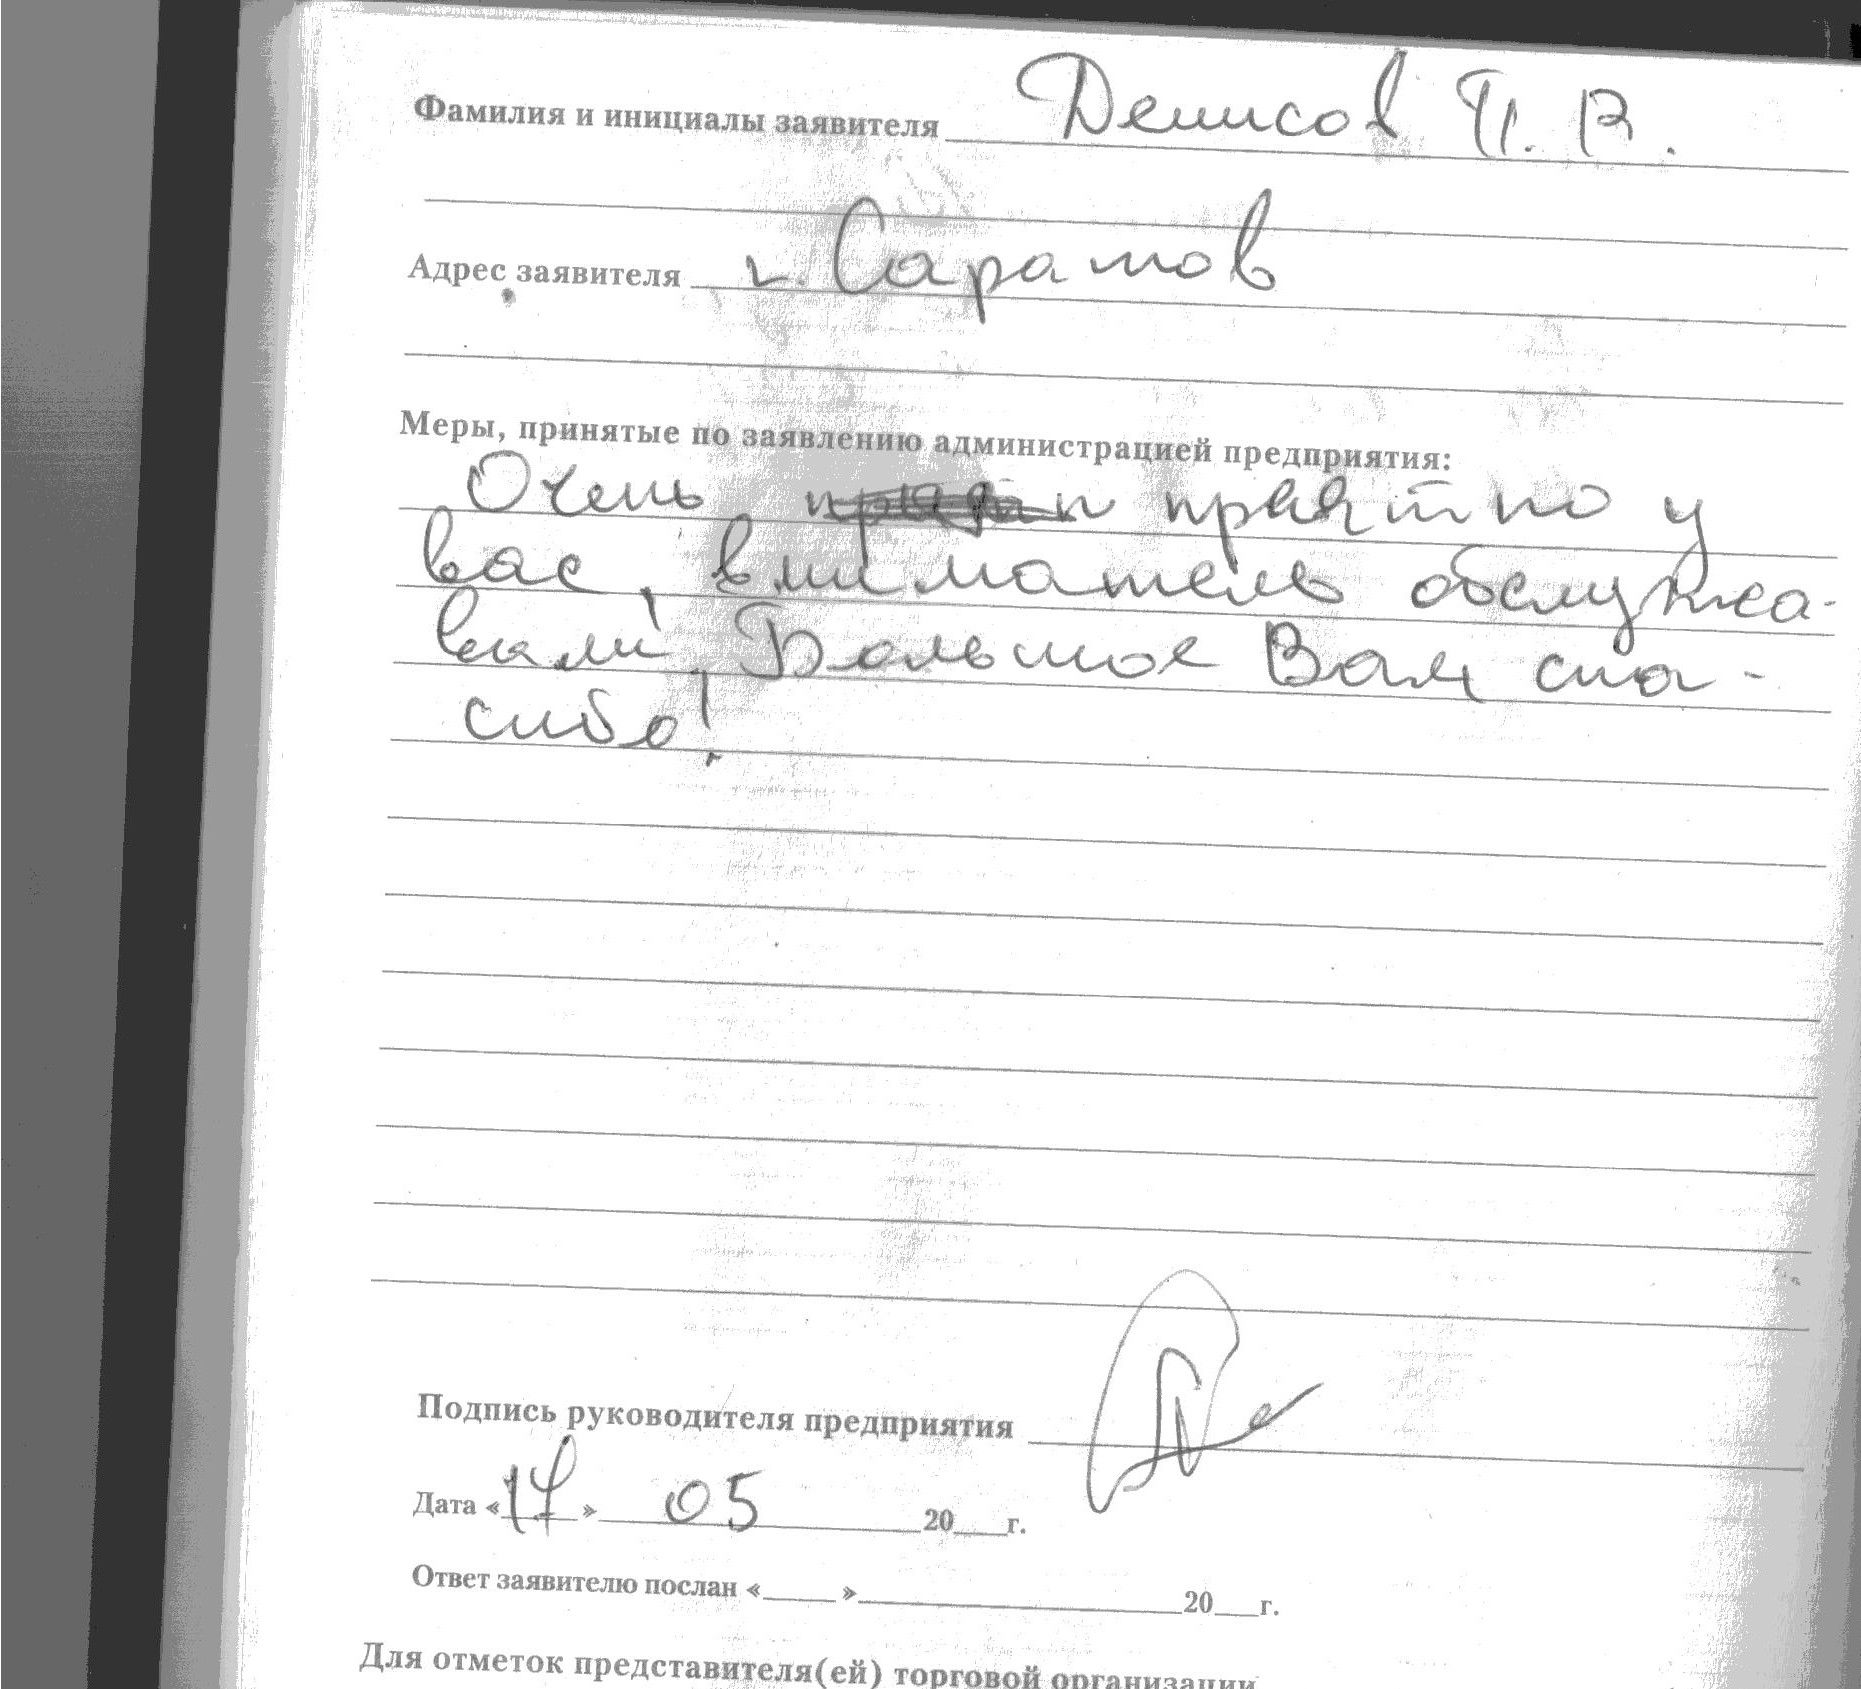 Фамилия и инициалы заявителя Денисов П. В.
Адрес заявителя г. Саратов
Меры, принятые по заявлению администрацией предприятия:
Очень приятно у
вас, вниматель обслужа-
вали, Большое Вам спа-
сибо!
Подпись руководителя предприятия
Дата «17» 05 20 г.
Ответ заявителю послан « » 20 г.
Для отметок представителя(ей) торговой организации